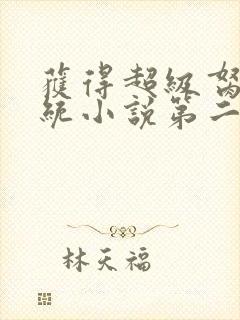 獲得超級
統小說第二
林天福